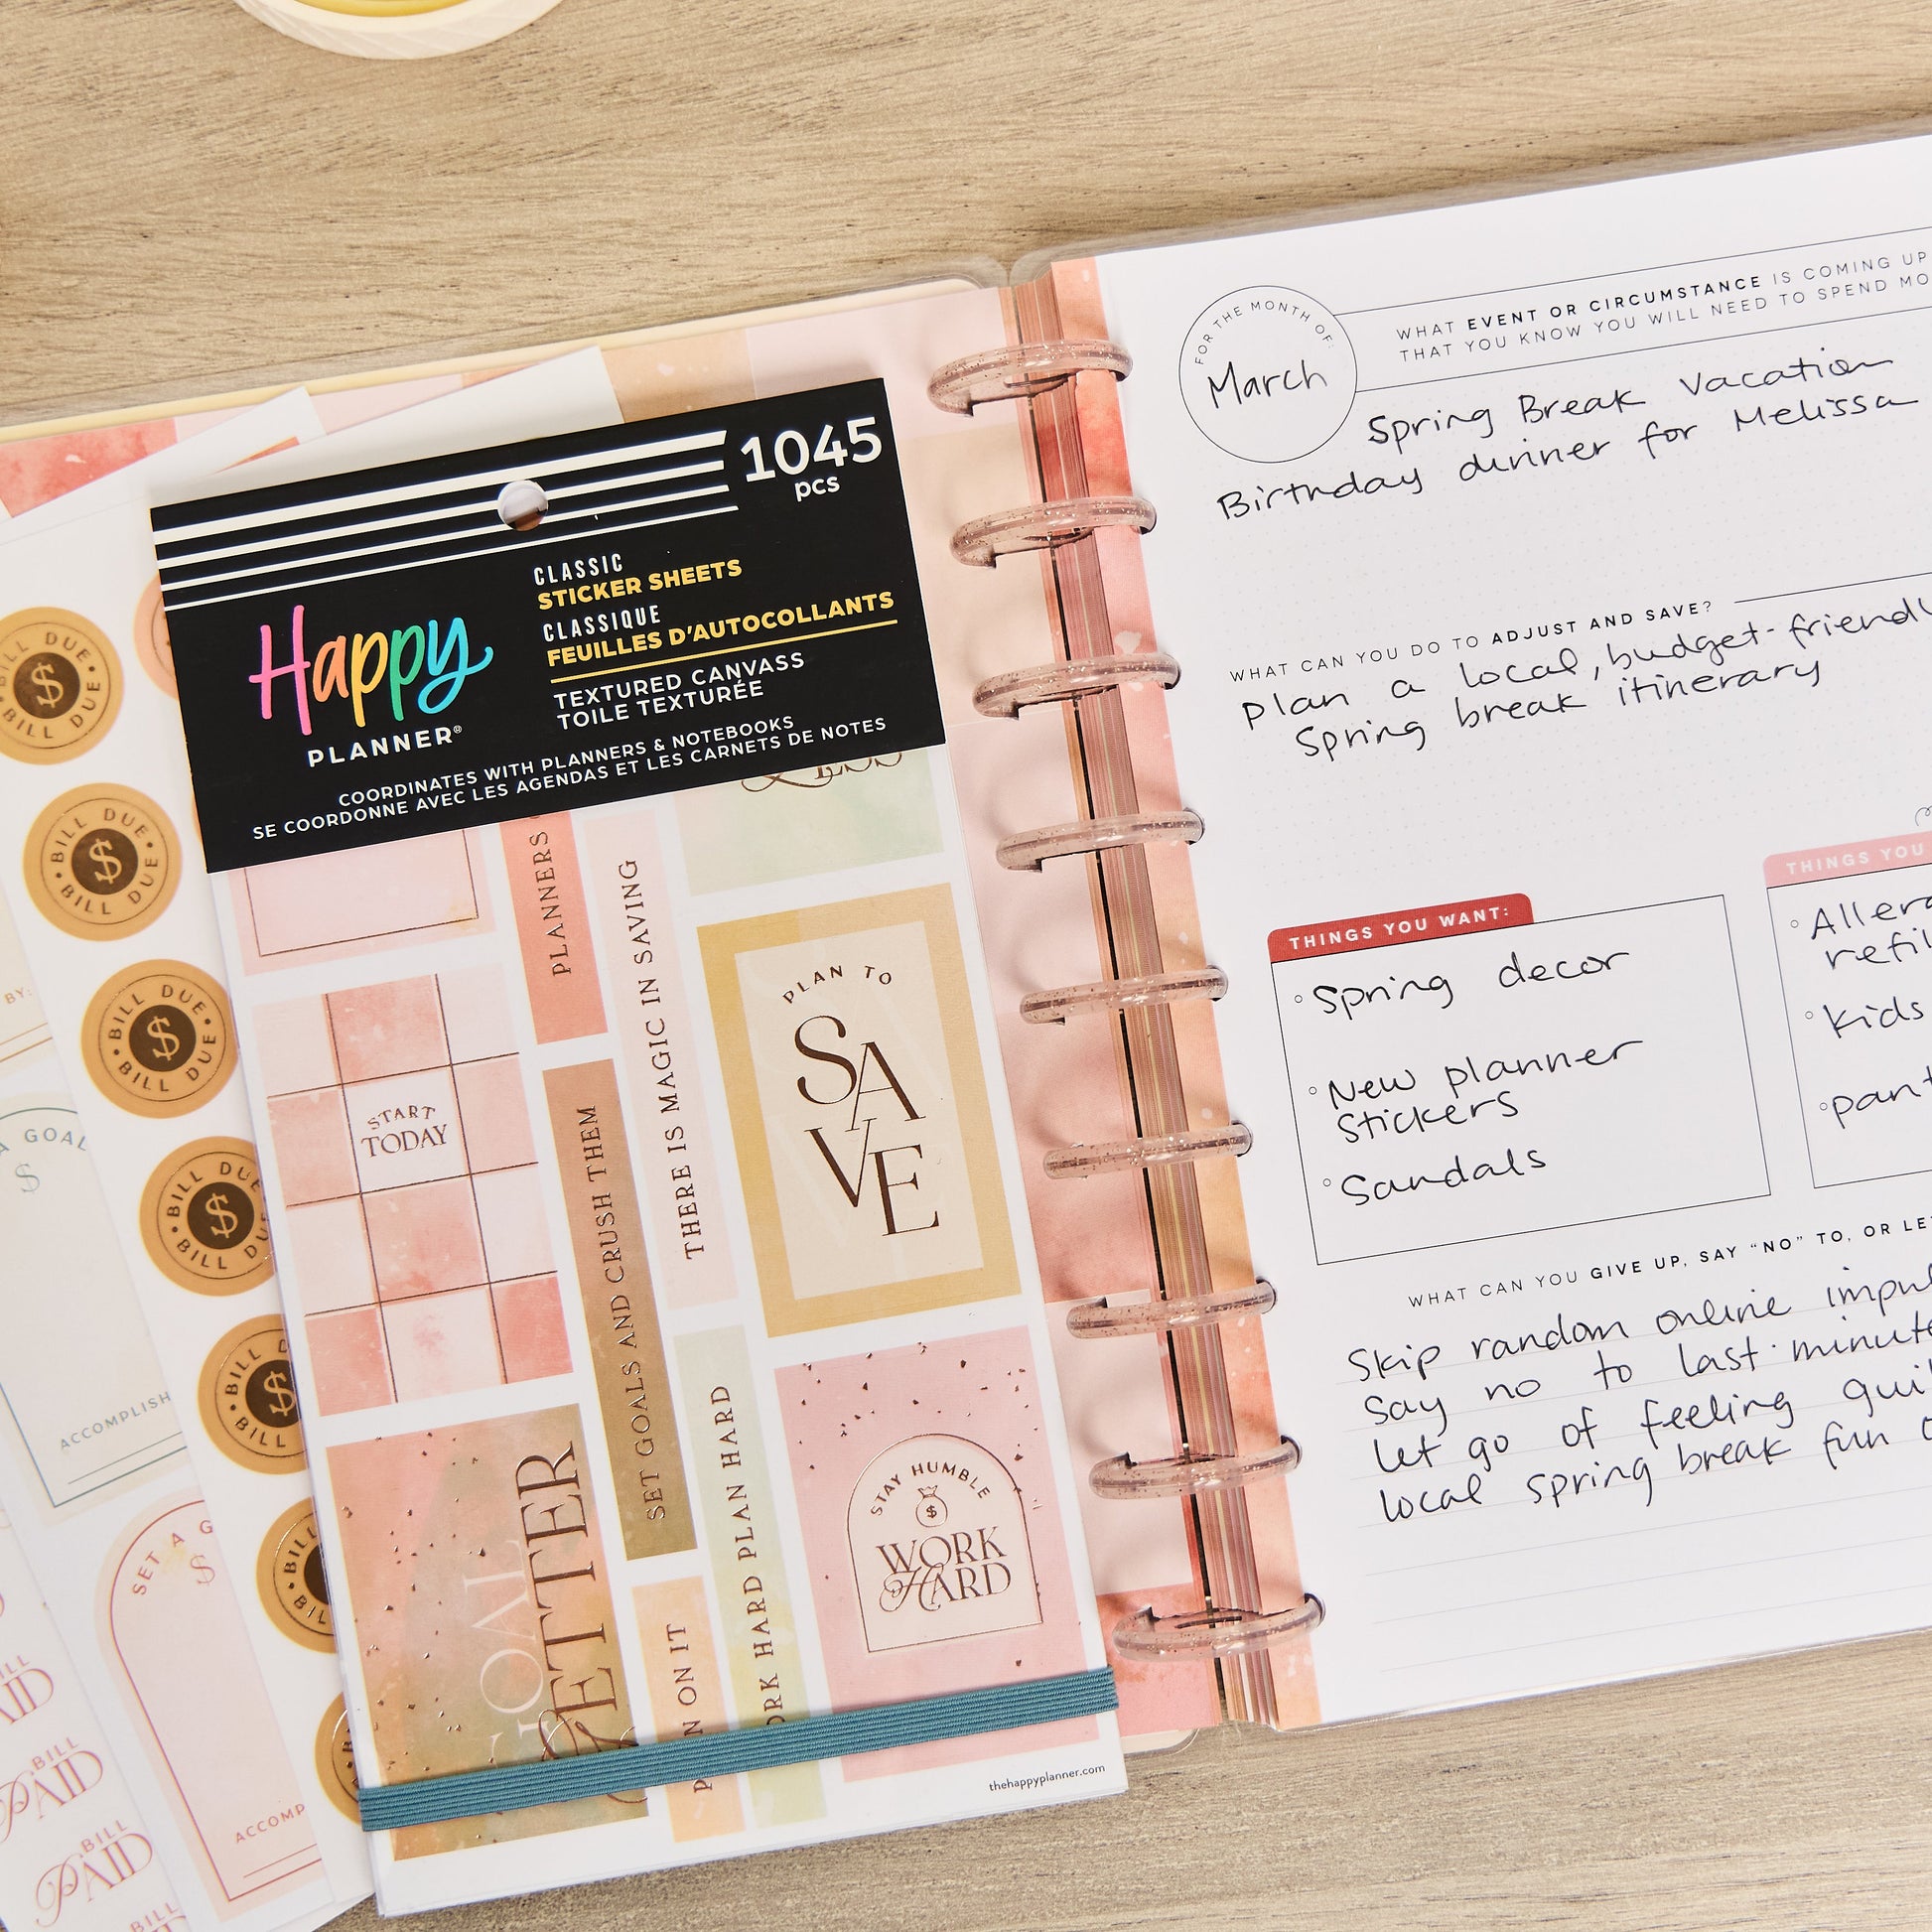 1045
pcs
CLASSIC
STICKER SHEETS
CLASSIQUE
FEUILLES D'AUTOCOLLANTS
TEXTURED CANVASS
TOILE TEXTURÉE
Happy
PLANNER®
COORDINATES WITH PLANNERS & NOTEBOOKS
SE COORDONNE AVEC LES AGENDAS ET LES CARNETS DE NOTES
PLANNERS
THERE IS MAGIC IN SAVING
PLAN TO
SAVE
START
TODAY
SET GOALS AND CRUSH THEM
HARD PLAN HARD
STAY HUMBLE
$
WORK
HARD
GOAL
GETTER
ON IT
thehappyplanner.com
BILL DUE
$
BILL DUE
BILL DUE
$
BILL DUE
BILL DUE
$
BILL DUE
BILL DUE
$
BILL DUE
BILL
$
BILL
BY:
A GOAL
$
SET A
$
BILL
PAID
BILL
PAID
BILL
FOR THE MONTH OF:
March
WHAT EVENT OR CIRCUMSTANCE IS COMING UP
THAT YOU KNOW YOU WILL NEED TO SPEND
Spring Break Vacation
Birthday dinner for Melissa
WHAT CAN YOU DO TO ADJUST AND SAVE?
plan a local, budget-friendly
Spring break itinerary
THINGS YOU WANT:
Spring decor
New planner
Stickers
Sandals
THINGS YOU
kids
WHAT CAN YOU GIVE UP, SAY "NO" TO, OR
Skip random online
Say no to last-minute
let go of feeling
local spring break fun